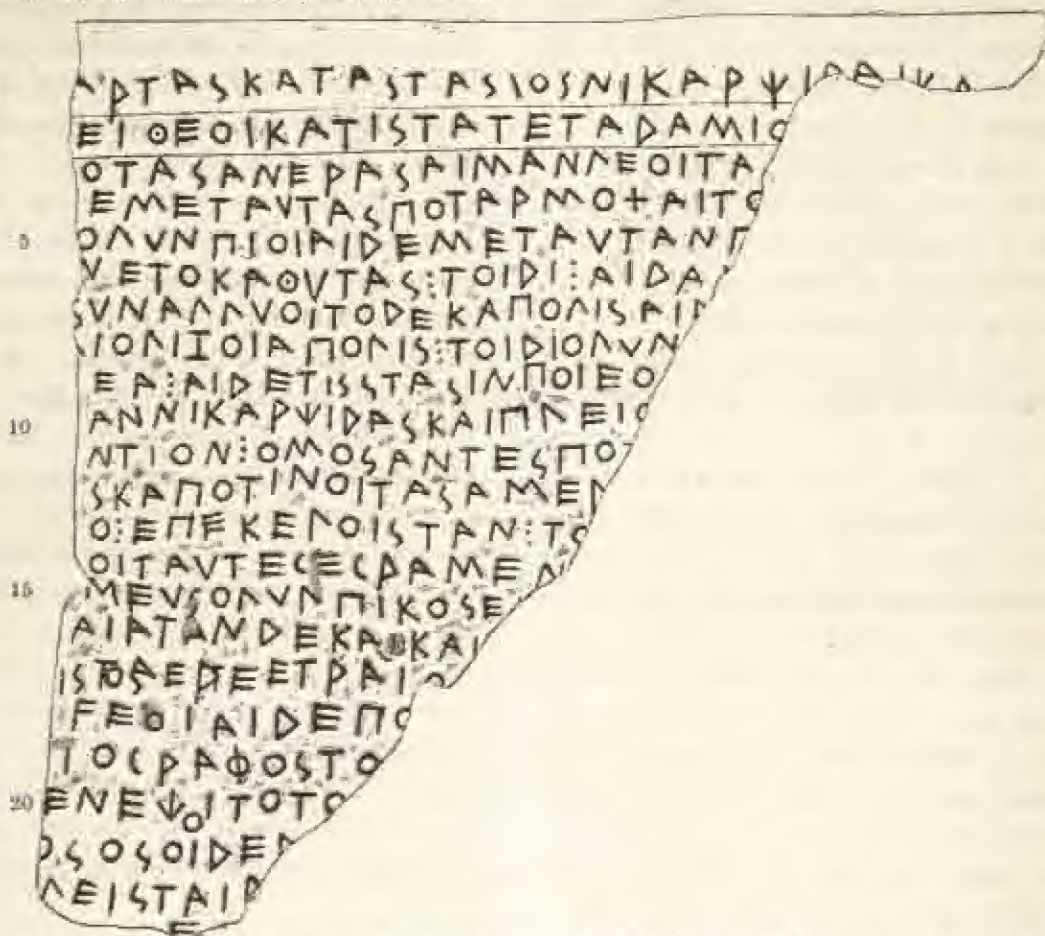 ΑΡΤΑSΚΑΤΑSΤΑSΙΟSΝΙΚΑΡΨΙΔΑΙΚΑ
ΕΙΘΕΟΙΚΑΤΙSΤΑΤΕΤΑDΑΜΙΟ
ΟΤΑSΑΝΕΡΑSΑΙΜΑΝΛΕΟΙΤΑ
ΕΜΕΤΑVΤΑSΠΟΤΑΡΜΟ+ΑΙΤΟ
5 ΟΛVΝΠΙΟΙΑΙDΕΜΕΤΑVΤΑΝΠ
VΕΤΟΚΑΘVΤΑS⁝ΤΟΙDΙ⁝ΑΙDΑ
SVΝΑΛΛVΟΙΤΟDΕΚΑΠΟΛΙSΑΙ
ΙΟΛΙΞΟΙΑΠΟΛΙS⁝ΤΟΙDΙΟΛVΝ
ΕΑ⁝ΑΙDΕΤΙSSΤΑSΙΝΠΟΙΕΟ
10 ΑΝΝΙΚΑΡΨΙDΑSΚΑΙΠΛΕΙΟ
ΝΤΙΟΝ⁝ΟΜΟSΑΝΤΕSΠΟΤ
SΚΑΠΟΤΙΝΟΙΤΑSΑΜΕΝ
Ο⁝ΕΠΕΚΕΛΟΙSΤΑΝ⁝ΤΟ
ΟΙΤΑVΤΕCΕCΡΑΜΕΝ
15 ΜΕVSΟΛVΝΠΙΚΟSΕ
ΑΙΑΤΑΝDΕΚΑΚΑΙ
ΙSΤΟSΑΕΡΕΕΤΡΑΙΟ
FΕΟΙΑΙDΕΠΟ
ΤΟCΡΑΦΟSΤΟ
20 ΕΝΕΨΟΙΤΟΤΟ
ΟSΟSΟΙDΕΝ
ΛΕΙSΤΑΙΡ
Ε